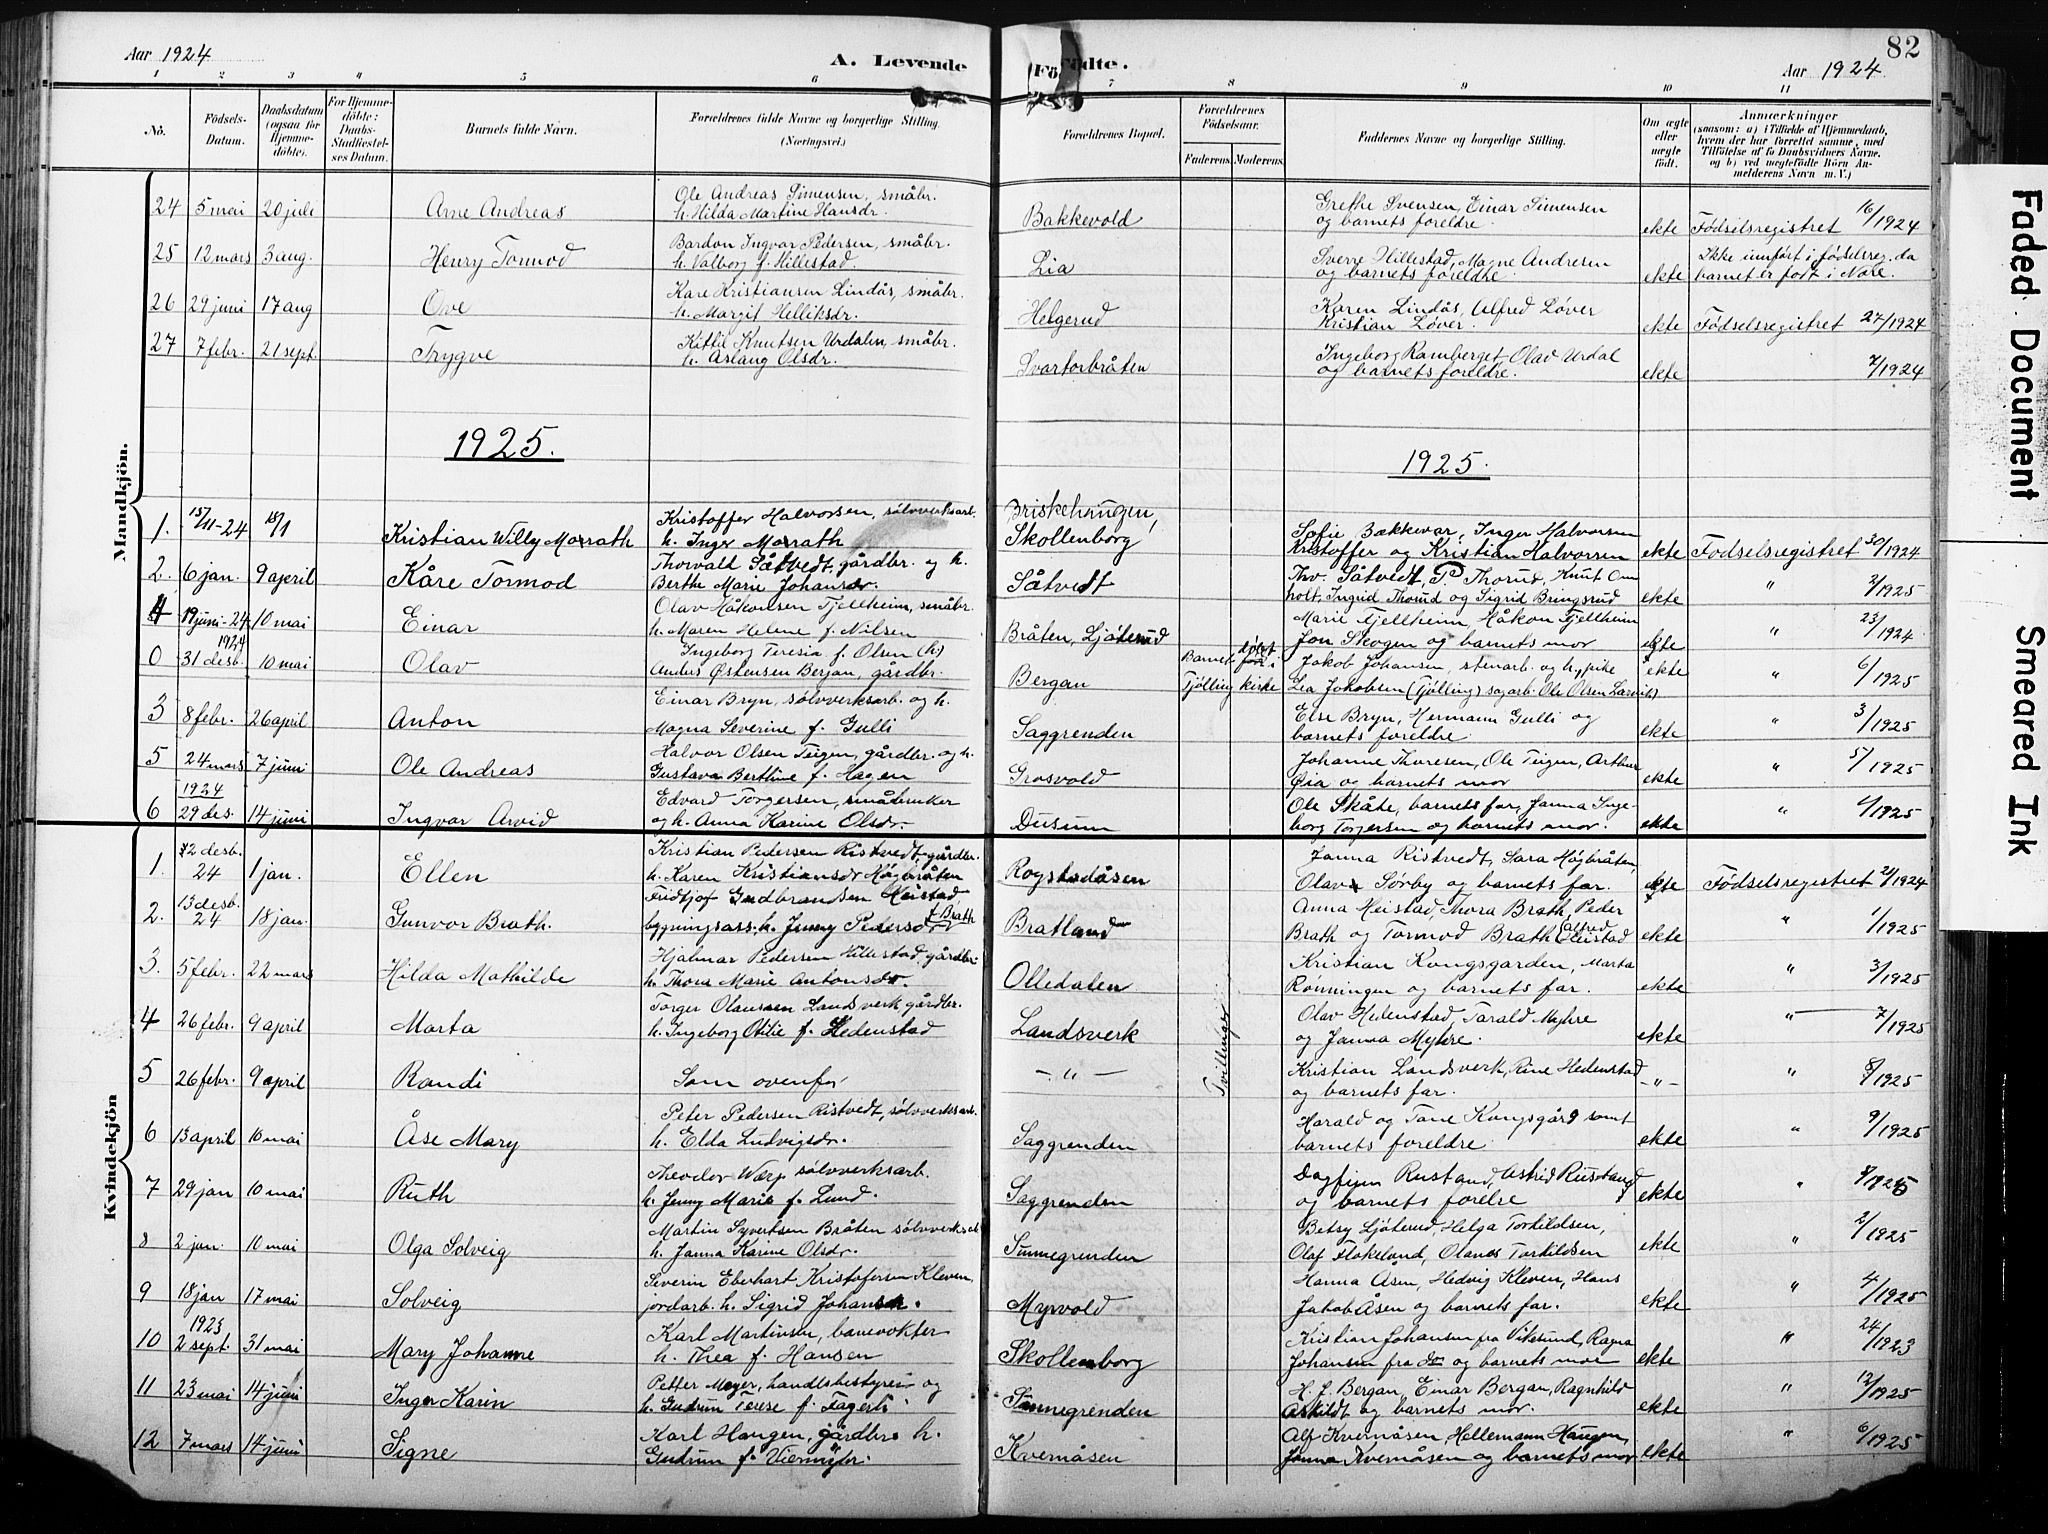 82
Aar 1924
A. Levende
Fö dte.
Aar 1924
1 2 3 4 5 6 7 8 9 10 11
No.
Födsels-Datum.
Daabsdatum (ogsaa for Hjemmedöbte).
For Hjemmedöbte: Daabs-Stadfæstelses Datum.
Barnets fulde Navn.
Forældrenes fulde Navne og borgerlige Stilling. (Næringsvei.)
Forældrenes Bopæl.
Forældrenes Födselsaar.
Faderens. Moderens.
Faddernes Navne og borgerlige Stilling.
Om ægte eller uægte födt.
Anmærkninger
(saasom: a) i Tilfælde af Hjemmedaab,
hvem der har forrettet samme, med
Tilföielse af to Daabsvidners Navne,
og b) ved uegtefödte Börn An-
melderens Navn m. V.)
Mandkjön.
24 5 mai 20 juli Arne Andreas Ole Andreas Simensen, småbr. h. Hilda Martine Hansdr. Bakkevold Grethe Svensen, Einar Simensen og barnets foreldre. ekte Fødselsregistret 16/1924
25 12 mars 3 aug. Henry Tormod Bardon Ingvar Pedersen, småbr. h. Valborg f. Hillestad. Lia Sverre Hillestad, Magne Andresen og barnets foreldre ekte Ikke innført i fødselsreg. da barnet er født i Nore.
26 29 juni 17 aug Ove Kåre Kristiansen Lindås, småbr. h. Margit Helliksdr. Helgerud Karen Lindås, Alfred Løver Kristian Løver. ekte Fødselsregistret 27/1924
27 7 febr. 21 sept. Trygve Kittil Knutsen Urdalen, småbr. h. Aslaug Olsdr. Svartorbråten Ingeborg Ramberget, Olav Urdal og barnets foreldre. ekte 7/1924
1925.
1925.
1. 15/11-24 18/1 Kristian Willy Morrath Kristoffer Halvorsen, sølvverksarb. h. Inger Morrath Briskehaugen, Skollenborg Sofie Bækkevar, Inger Halvorsen Kristoffer og Kristian Halvorsen ekte Fødselsregistret 30/1924
2. 6 jan. 9 april Kåre Tormod Thorvald Såtvedt, gårdbr. og h. Berthe Marie Johansdr. Såtvedt Thv. Såtvedt, P Thorud, Knut Omholt, Ingrid Thorud og Sigrid Bringsrud ekte " 2/1925
4 19 juni-24 10 mai Einar Olav Håkonsen Fjellheim, småbr. h. Maren Helene f. Nilsen Bråten, Ljøterud Marie Fjellheim, Håkon Fjellheim Jon Skogen og barnets mor ekte " 23/1924
0 1924 31 desb. 10 mai Olav Ingeborg Teresia f. Olsen (h) Anders Østensen Bergan, gårdbr. Bergan Barnet døbt i Tjølling kirke Jakob Johansen, stenarb. og h., pike Lea Jakobsen (Tjølling) sagarb. Ole Olsen Larvik) ekte " 6/1925
3 8 febr. 26 april Anton Einar Bryn, sølvverksarb. og h. Magna Severine f. Gulli Saggrenden Else Bryn, Hermann Gulli og barnets foreldre. ekte " 3/1925
5 24 mars 7 juni Ole Andreas Halvor Olsen Teigen, gårdbr. og h. Gustava Berthine f. Hagen Grosvold Johanne Thoresen, Ole Teigen, Arthur Øia og barnets mor ekte " 5/1925
6 1924 29 des. 14 juni Ingvar Arvid Edvard Torgersen, småbruker og h. Anna Karine Olsdr. Dusum Ole Skåte, barnets far, Janna Ingeborg Torgersen og barnets mor. ekte " 1/1925
Kvindekjön
1. 12 desb. 24 1 jan. Ellen Kristian Pedersen Ristvedt, gårdbr. h. Karen Kristiansdr Høgbråten Rogstadåsen Janna Ristvedt, Sara Høgbråten, Olav Sørby og barnets far. ekte Fødselsregistret 21/1924
2. 13 desb. 24 18 jan. Gunvor Brath. Fridtjof Gudbrandsen Heistad, bygningsass. h. Jenny Pedersdr f. Brath Bratland Anna Heistad, Thora Brath, Peder Brath og Tormod Brath, Alfred Heistad ekte " 1/1925
3. 5 febr. 22 mars Hilda Mathilde Hjalmar Pedersen Hillestad, gårdbr. h. Thora Marie Antonsdr. Olledalen Kristian Kongsgarden, Marta Rønningen og barnets far. ekte " 3/1925
4 26 febr. 9 april Marta Torger Olaussen Landsverk gårdbr. h. Ingeborg Otilie f. Hedenstad Landsverk Tvillinger Olav Hedenstad, Tarald Myhre og Janna Myhre. ekte " 7/1925
5 26 febr. 9 april Randi Som ovenfor - " - Kristian Landsverk, Rine Hedenstad og barnets far. - " - " 8/1925
6 13 april 10 mai Åse Mary Peter Pedersen Ristvedt, sølvverksarb. h. Elda Ludvigsdr. Saggrenden Harald og Tane Kongsgård samt barnets foreldre ekte " 9/1925
7 29 jan 10 mai Ruth Theodor Warp sølvverksarb. h. Jenny Marie f. Lund. Saggrenden Dagfinn Rustand, Astrid Rustand og barnets forelse ekte " 8/1925
8 2 jan. 10 mai Olga Solveig Martin Syvertsen Bråten sølvverksarb h. Janna Karine Olsdr. Sunnegrenden Betsy Ljøterud, Helga Torkildsen, Olaf Flokeland, Olanus Torkildsen ekte " 2/1925
9 18 jan 17 mai Solveig Severin Eberhart Kristofersen Kleven, jordarb. h. Sigrid Johansdr. Myrvold Hanna Åsen, Hedvig Kleven, Hans Jakob Åsen og barnets far. ekte " 4/1925
10 1923 2 sept. 31 mai Mary Johanne Karl Martinsen, banevokter h. Thea f. Hansen Skollenborg Kristian Johansen fra Vikesund, Ragna Johansen fra do og barnets mor ekte " 24/1923
11 23 mai 14 juni Inger Karin Petter Meyer, handlsbestyrer og h. Gudrun Terese f. Fagerli Sunnegrenden H. J. Bergan, Einar Bergan, Ragnhild Askildt og barnets mor. ekte " 12/1925
12 7 mars 14 juni Signe Karl Haugen, gårdbr. h. Gudrun f. Viermyr. Kvernåsen Alf Kvernåsen, Hellemann Haugen, Janna Kvernåsen og barnets mor ekte " 6/1925
Faded Document
Smeared Ink